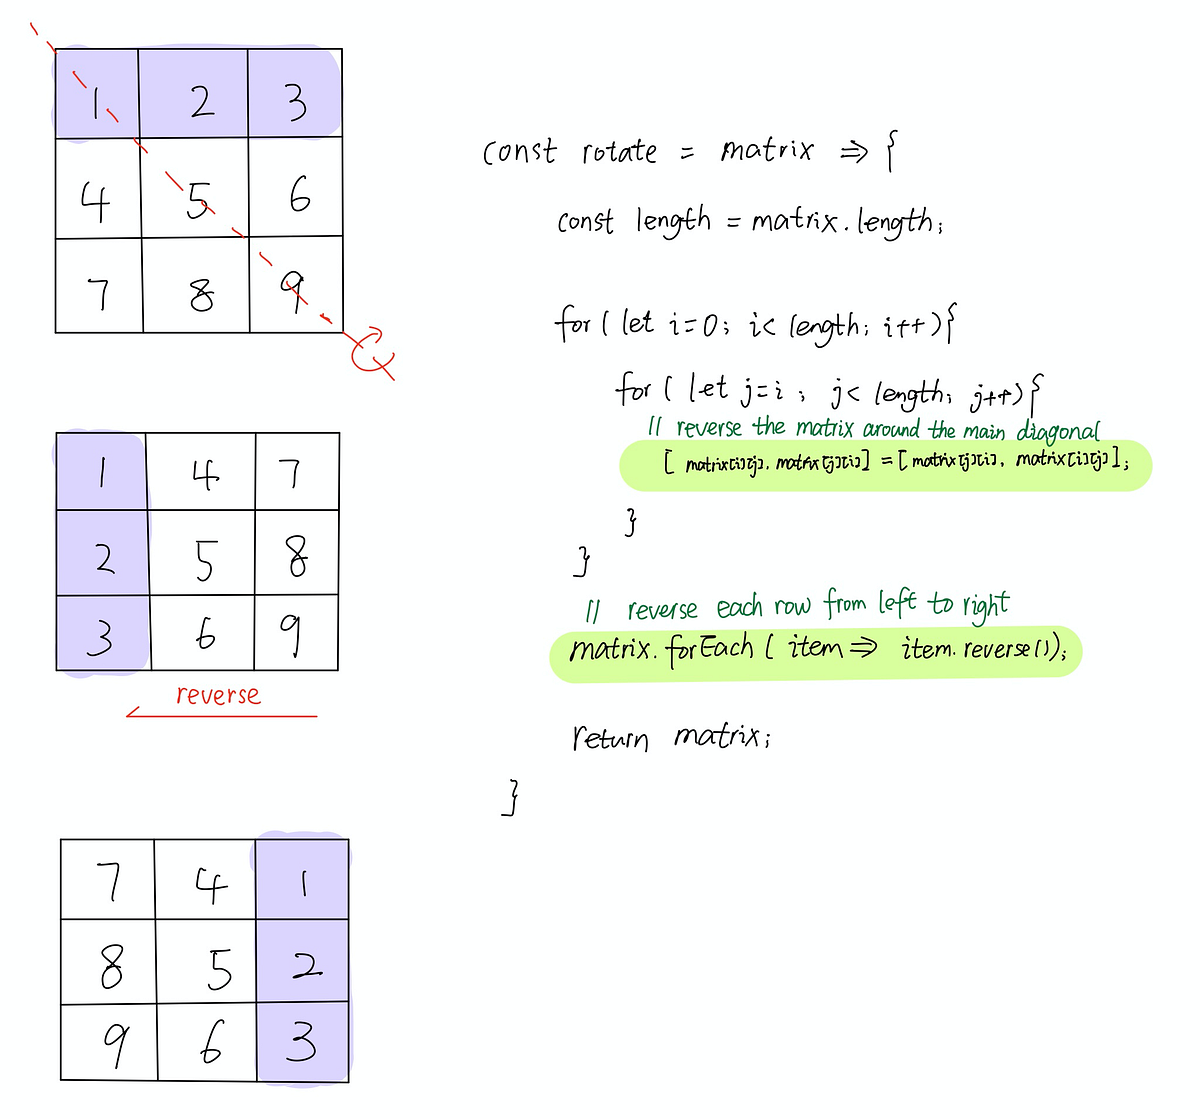 1 2 3
4 5 6
7 8 9
1 4 7
2 5 8
3 6 9
reverse
7 4 1
8 5 2
9 6 3
const rotate = matrix => {
const length = matrix.length;
for ( let i=0; i< length; i++){
for ( let j=i ; j< length; j++){
// reverse the matrix around the main diagonal
[ matrix[i][j], matrix[j][i]] = [ matrix[j][i], matrix[i][j]];
}
}
// reverse each row from left to right
matrix.forEach ( item => item.reverse());
return matrix;
}